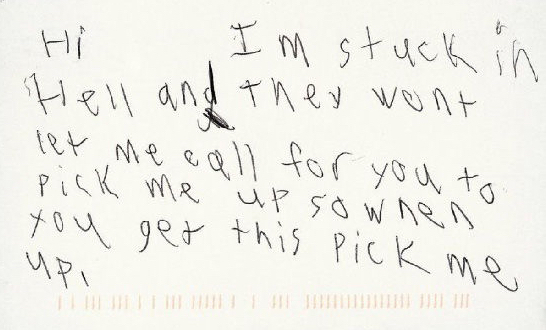 Hi I'm stuck in
Hell and they wont
let me call for you to
pick me up so when
you get this pick me
up.